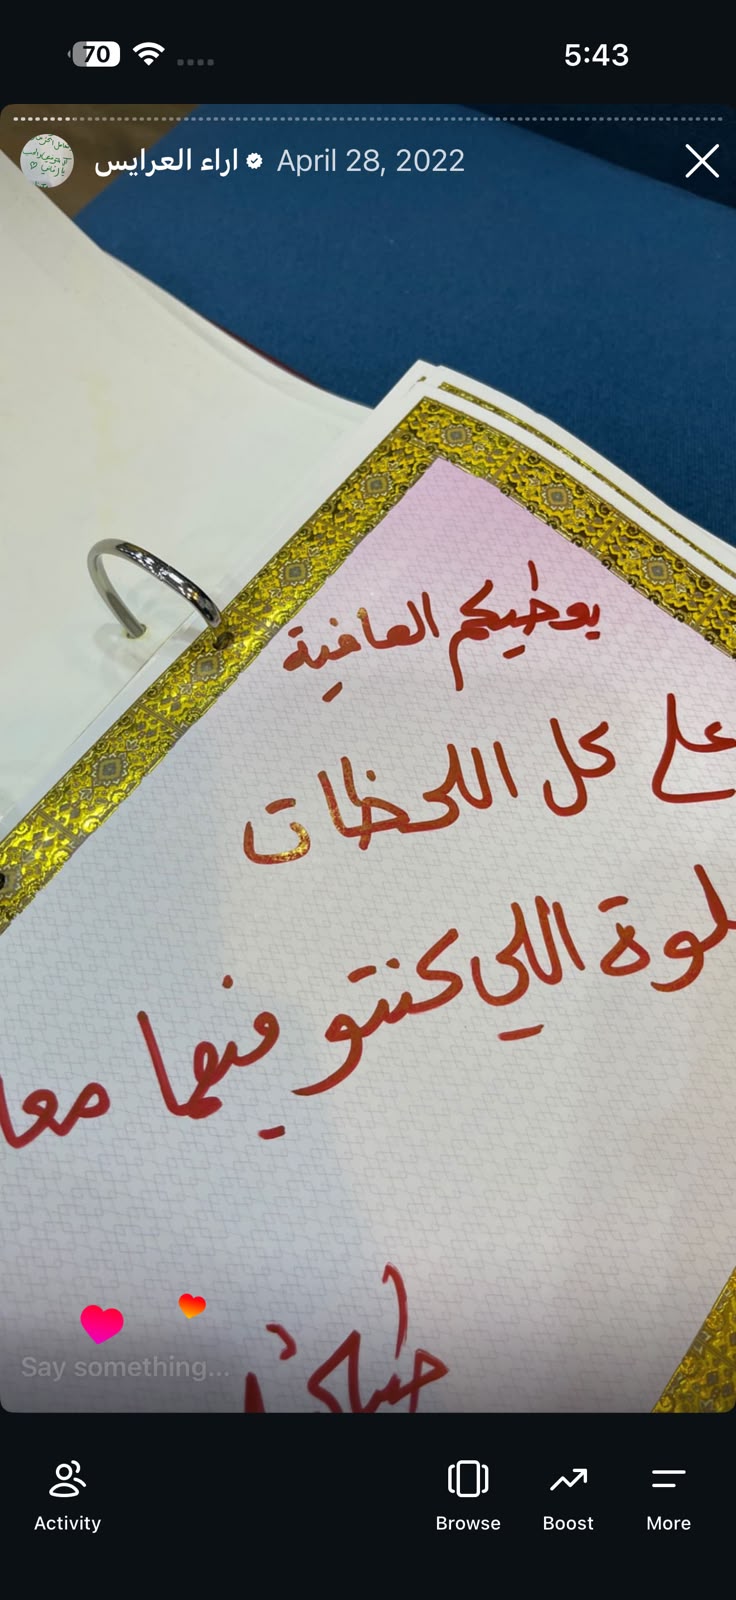 70
5:43
اراء العرايس
April 28, 2022
يعطيكم العافية
على كل اللحظات
اللي كنتو فيها
Say something...
Activity
Browse
Boost
More